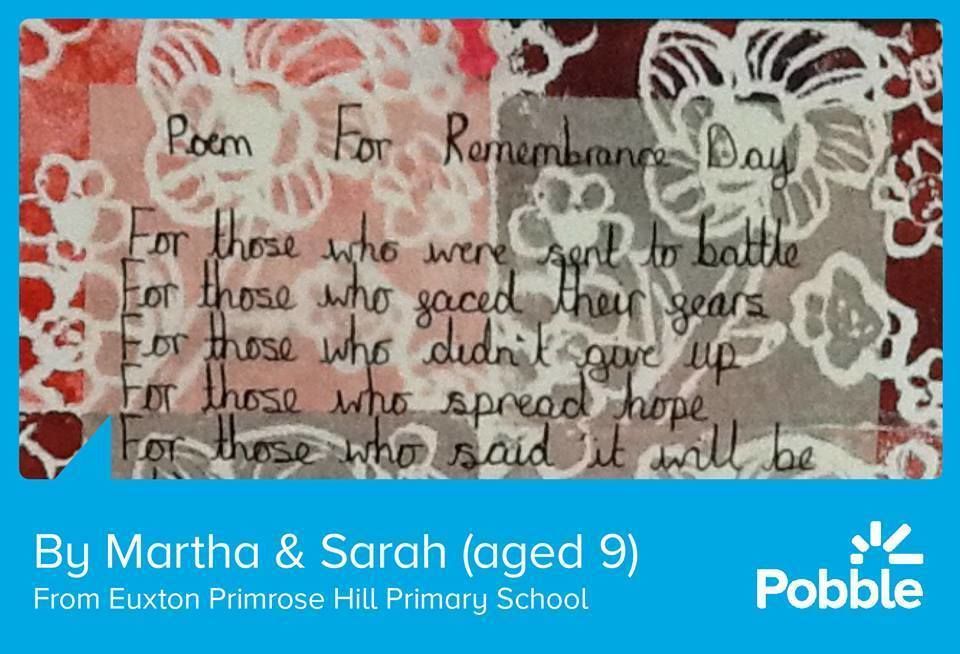 Poem For Remembrance Day
For those who were sent to battle
For those who faced their fears
For those who didn't give up
For those who spread hope
For those who said it will be
By Martha & Sarah (aged 9)
From Euxton Primrose Hill Primary School
Pobble